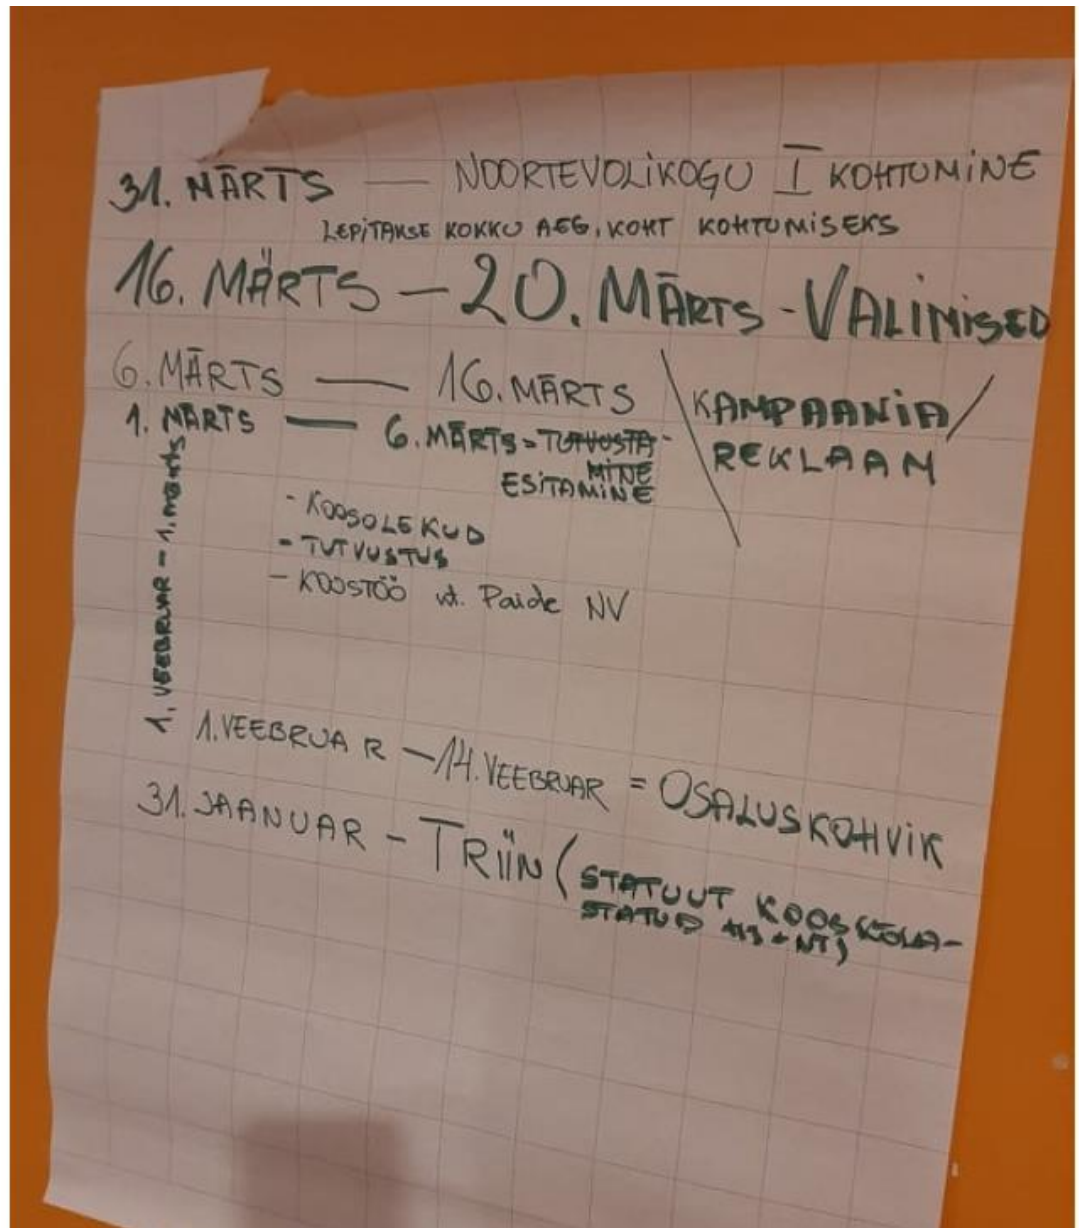 31. MÄRTS — NOORTEVOLIKOGU I KOHTUMINE
LEPITAKSE KOKKU AEG, KOHT KOHTUMISEKS
16. MÄRTS – 20. MÄRTS - VALIMISED
6. MÄRTS — 16. MÄRTS \ KAMPAANIA /
REKLAAM
1. MÄRTS — 6. MÄRTS = TUTVUSTA-
MINE
ESITAMINE
1. VEEBRUAR – 1. märts
- KOOSOLEKUD
- TUTVUSTUS
- KOOSTÖÖ Paide NV
1. VEEBRUAR – 14. VEEBRUAR = OSALUSKOHVIK
31. JAANUAR – TRIIN (STATUUT KOOSKÕLA-
STATUD + NT)